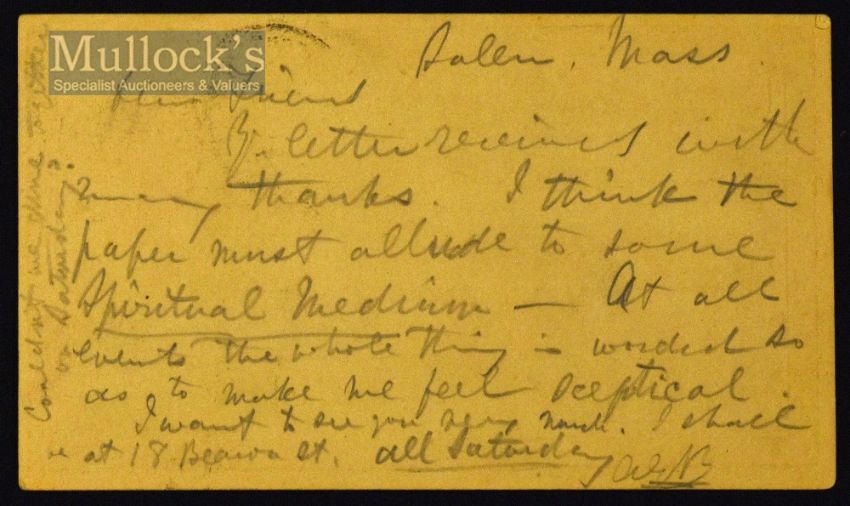 Mullock's
Specialist Auctioneers & Valuers
Salem, Mass.
Dear Friend
Yr. letter received with
many thanks. I think the
paper must allude to some
Spiritual Medium — At all
events the whole thing is worded so
as to make me feel sceptical.
I want to see you very much. I shall
be at 18 Beacon St. all Saturday
AGB
Couldn't we dine together
on Saturday?